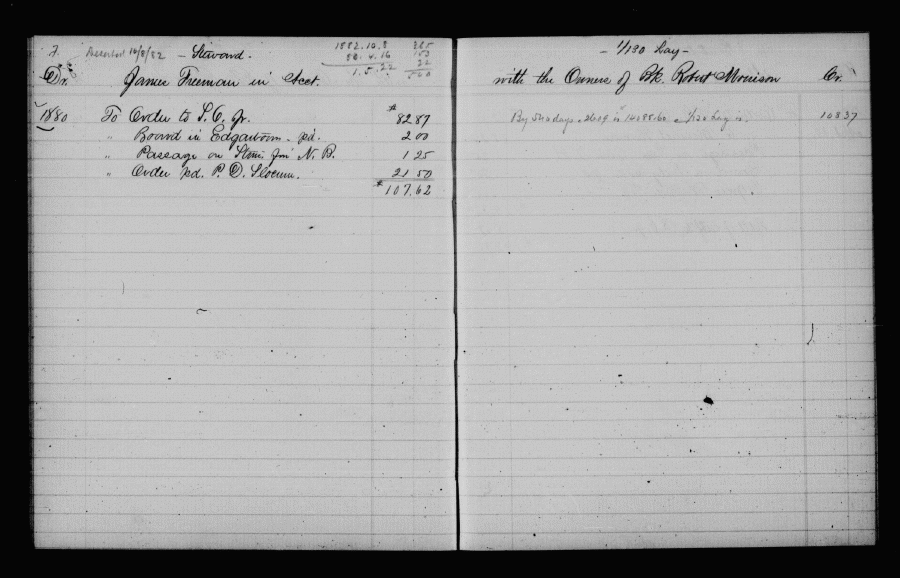 Deserted 10/8/82 - Steward.
1882.10.8
80.4.16
1.5.22
365
153
22
540
Dr. James Freeman in Acct.
1880 To Order to S. C. Jr. $82 87
" Board in Edgartown. pd. 2 00
" Passage on Stmr fm N. B. 1 25
" Order pd. P. D. Slocum. 21 50
$107.62
- 1/130 Lay -
with the Owners of Bk Robert Morrison Cr.
By 540 days 1/130 Lay is 108 37